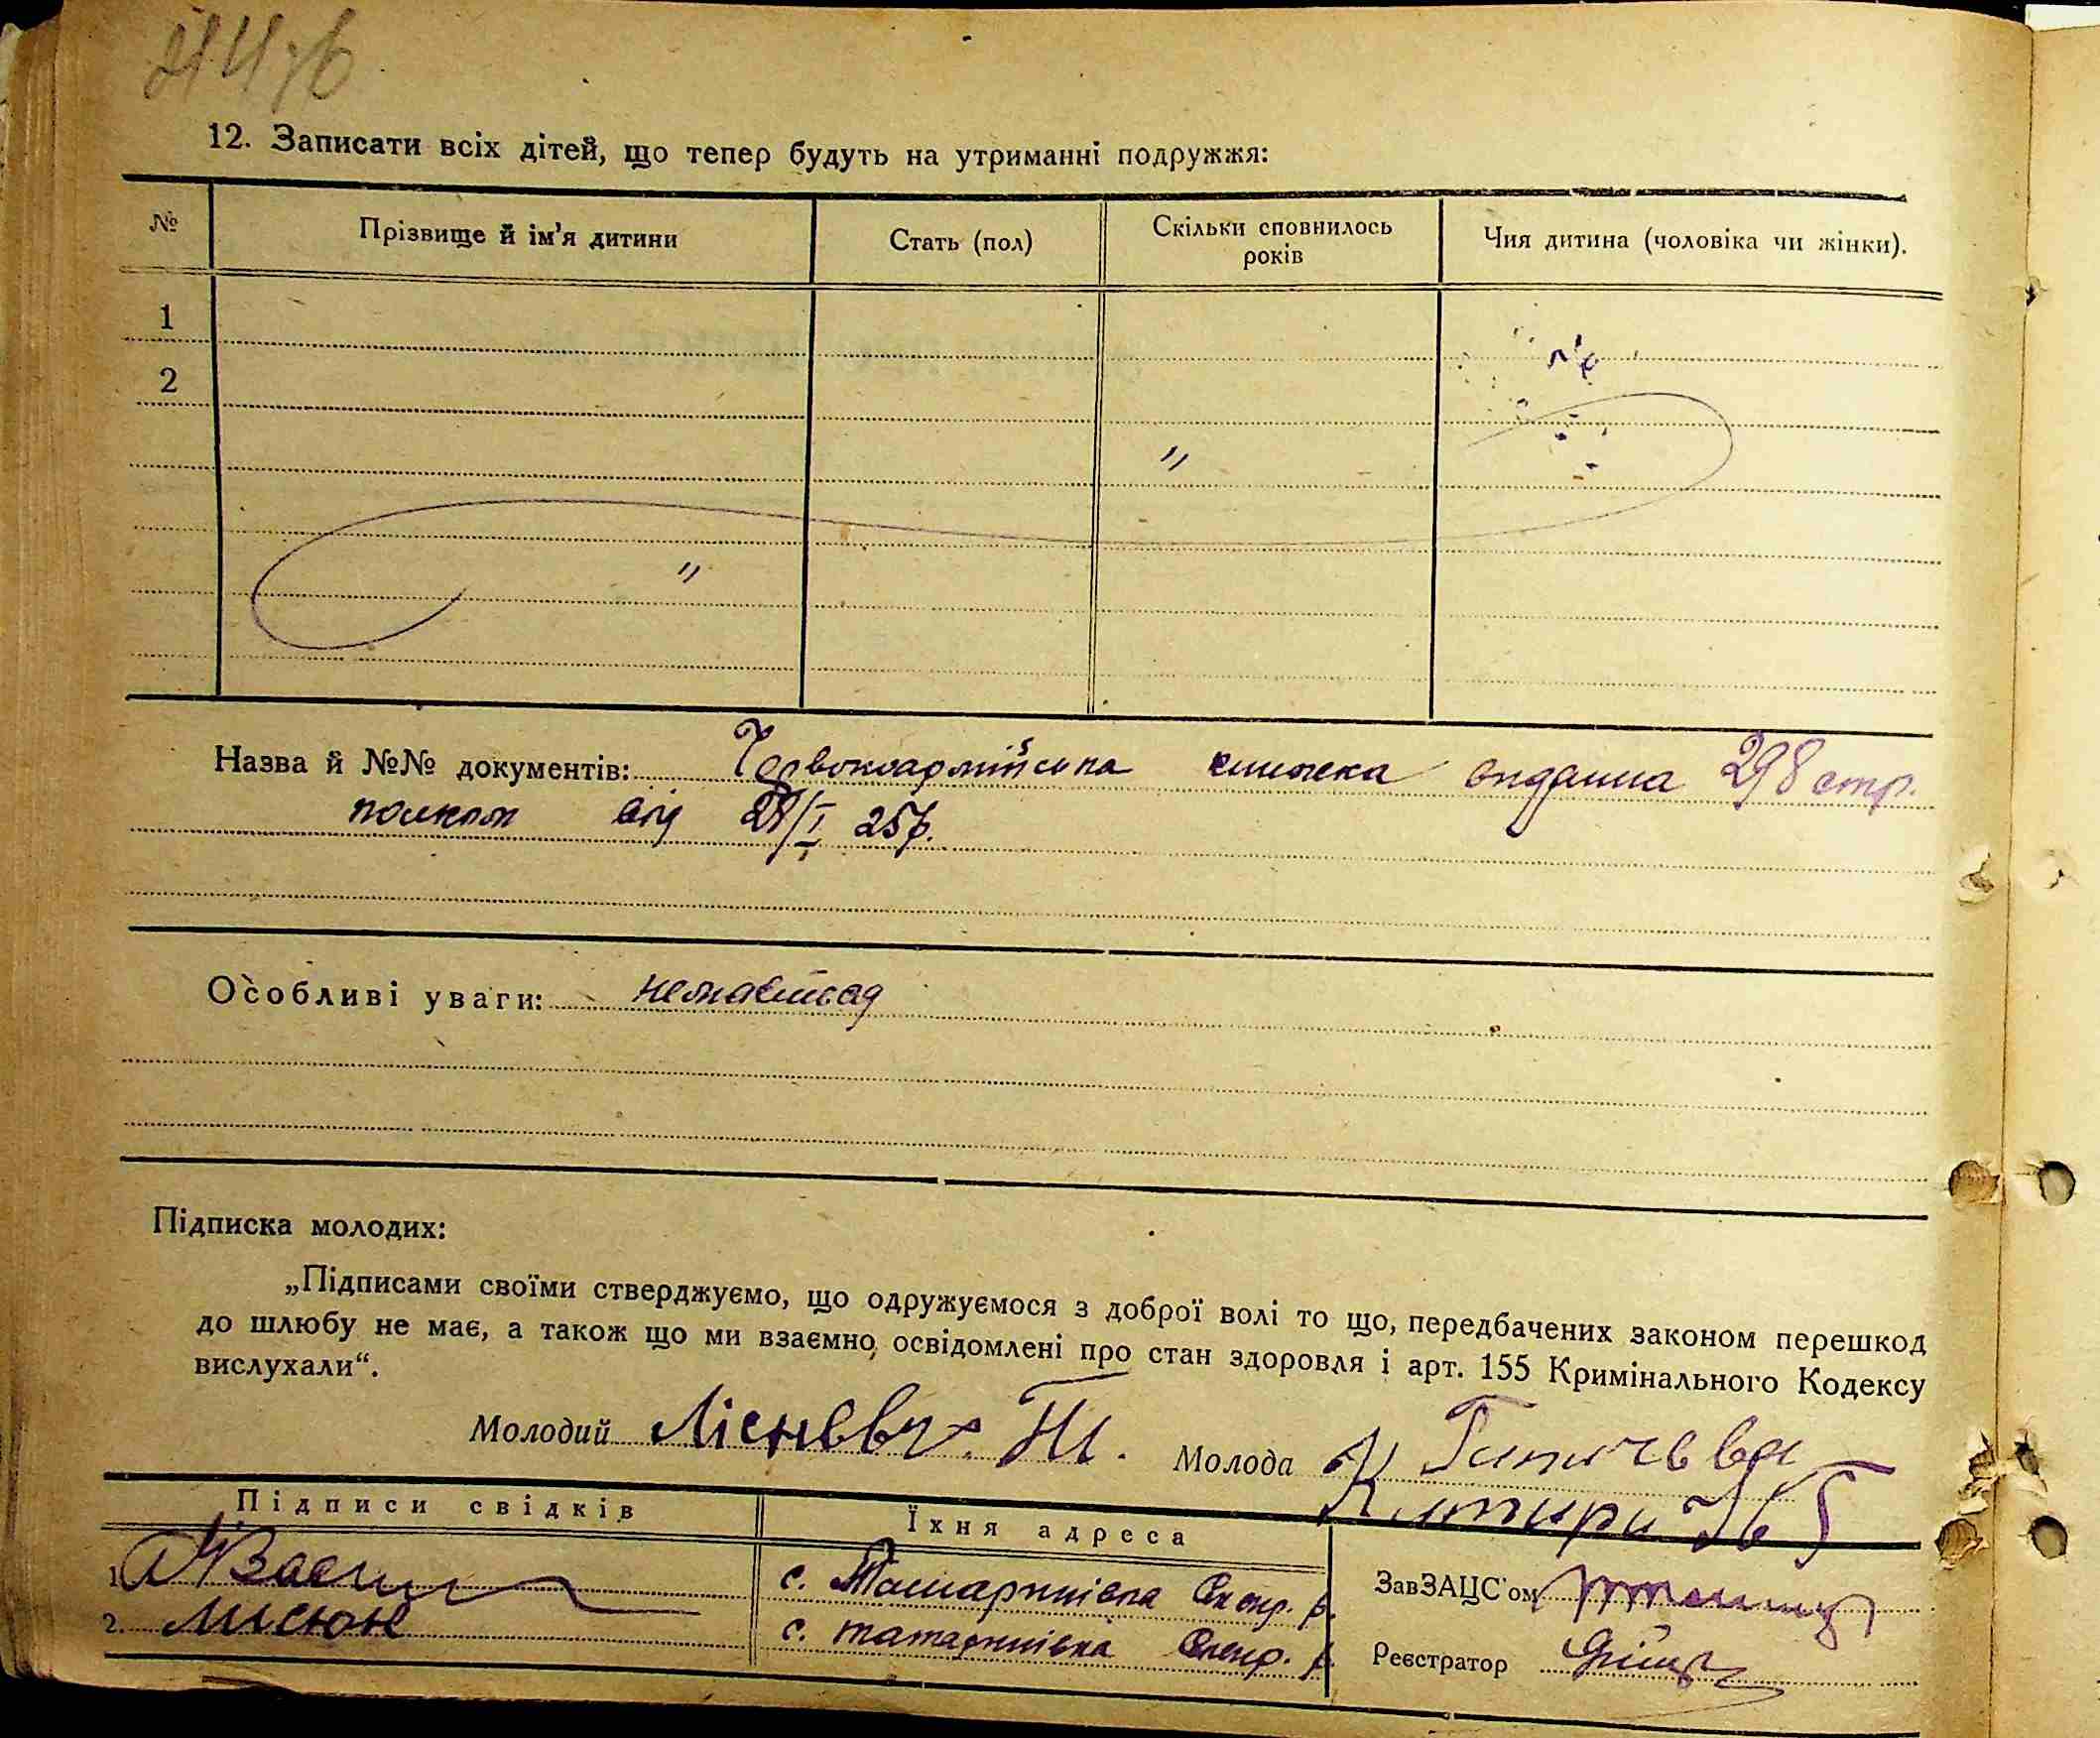 12. Записати всіх дітей, що тепер будуть на утриманні подружжя:
№ Прізвище й ім’я дитини Стать (пол) Скільки сповнилось років Чия дитина (чоловіка чи жінки).
1
2
"
"
Назва й №№ документів: Червоноармійська книжка видана 298 стр.
полком від 28/I 25р.
Особливі уваги:
Підписка молодих:
„Підписами своїми стверджуємо, що одружуємося з доброї волі то що, передбачених законом перешкод
до шлюбу не має, а також що ми взаємно освідомлені про стан здоровля і арт. 155 Кримінального Кодексу
вислухали“.
Молодий Молода
Підписи свідків Їхня адреса
1. с. Татаринівка р. ЗавЗАЦС'ом
2. Мисюк с. татаринівка р. Реєстратор